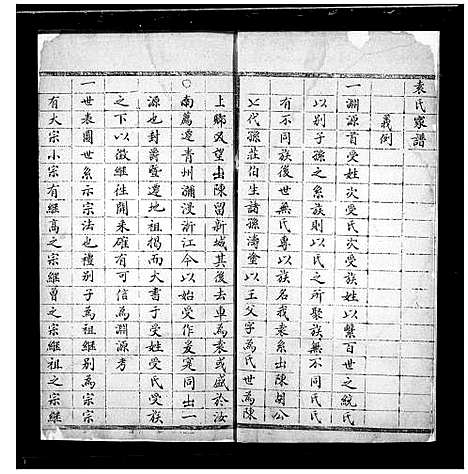 袁氏家譜
義例
一淵源首受姓次受氏次受族姓以繫百世之統氏
以別子孫之系族則以氏之所聚族無不同氏氏
有不同族後世無氏專以族名我袁系出陳胡公
七代孫莊伯生諸孫濤塗以王父字為氏世為陳
上鄉又望出陳留新城其後去車為袁或盛於汝
南薦遷青州瀰漫浙江今以始受作爰寔同出一
源也封爵暨遷地祖獨而大書子受姓受氏受族
之下以徵繼往開来確有可信為淵源考
一世表圖世系示宗法也禮別子為祖繼別為宗宗
有大宗小宗有繼高之宗繼曾之宗繼祖之宗繼